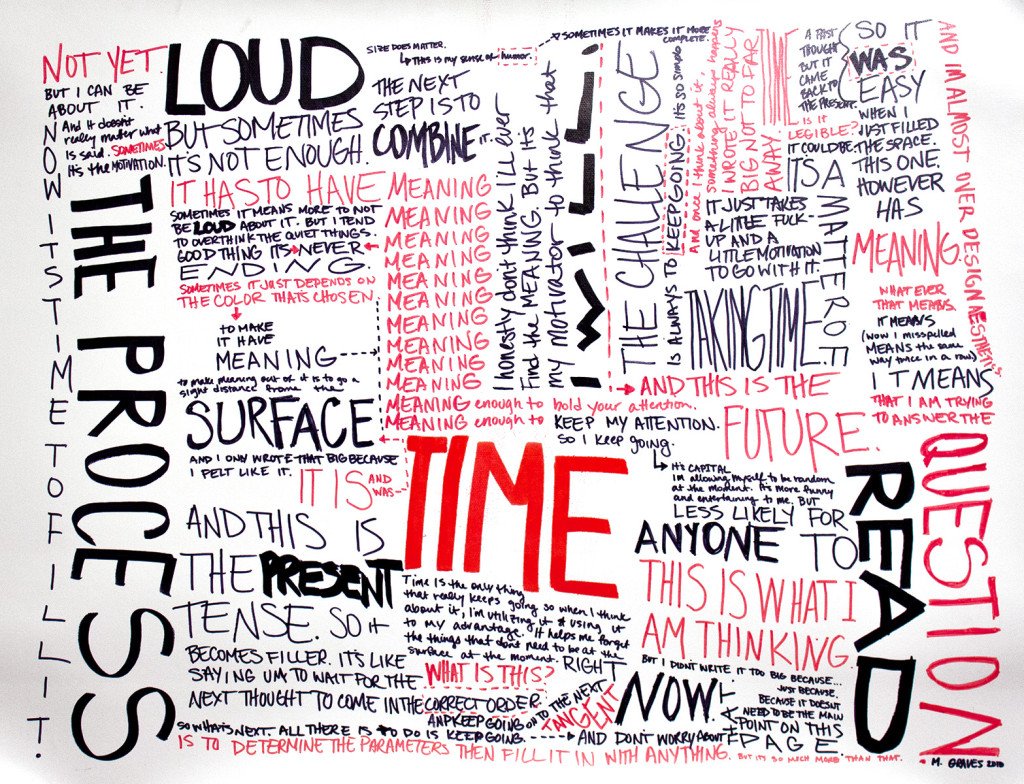 NOT YET.
BUT I CAN BE
ABOUT IT.
And it doesn't
really matter what
is said. SOMETIMES
It's the MOTIVATION.
NOW ITS TIME TO FILL IT.
THE PROCESS
LOUD
BUT SOMETIMES
IT'S NOT ENOUGH.
IT HAS TO HAVE
SOMETIMES IT MEANS MORE TO NOT
BE LOUD ABOUT IT. BUT I TEND
TO OVERTHINK THE QUIET THINGS.
GOOD THING IT'S NEVER
ENDING.
SOMETIMES IT JUST DEPENDS ON
THE COLOR THAT'S CHOSEN
TO MAKE
IT HAVE
MEANING
to make meaning out of it is to go a
sight distance from the
SURFACE
AND I ONLY WROTE THAT BIG BECAUSE
I FELT LIKE IT.
IT IS AND
WAS
AND THIS IS
THE PRESENT
TENSE. SO it
BECOMES FILLER. IT'S LIKE
SAYING UM TO WAIT FOR THE
NEXT THOUGHT TO COME IN THE CORRECT ORDER.
AND KEEP GOING ON TO THE NEXT
TANGENT
SO WHAT'S NEXT. ALL THERE IS TO DO IS KEEP GOING. AND DON'T WORRY ABOUT IT
IS TO DETERMINE THE PARAMETERS THEN FILL IT IN WITH ANYTHING. BUT IT'S SO MUCH MORE THAN THAT.
SIZE DOES MATTER.
This is my sense of humor.
SOMETIMES IT MAKES IT MORE
COMPLETE.
THE NEXT
STEP IS TO
COMBINE IT.
MEANING
MEANING
MEANING
MEANING
MEANING
MEANING
MEANING
MEANING
MEANING
MEANING
MEANING
MEANING enough to hold your attention.
MEANING enough to KEEP MY ATTENTION.
SO I keep going.
I honestly don't think I'LL ever
Find the MEANING. But its
my motivator to think that
THE CHALLENGE
IS ALWAYS TO KEEP GOING. IT'S SO simple
And once I think about it something always happens
I WROTE IT REALLY
BIG NOT TOO FAR
AWAY.
TIME
A PAST
THOUGHT
BUT IT
CAME
BACK TO
THE PRESENT.
IS it
LEGIBLE?
IT COULD BE.
IT'S A
MATTER OF
IT JUST TAKES
A LITTLE FUCK-
UP AND A
LITTLE MOTIVATION
TO GO WITH IT.
TAKING TIME.
AND THIS IS THE
FUTURE.
SO IT
WAS
EASY
WHEN I
JUST FILLED
THE SPACE.
THIS ONE.
HOWEVER
HAS
MEANING.
WHAT EVER
THAT MEANS.
IT MEANS
(wow I misspelled
MEANS the same
way twice in a row)
IT MEANS
THAT I AM TRYING
TO ANSWER THE
QUESTION
AND I'M ALMOST OVER DESIGN AESTHETICS.
TIME
Time is the only thing
that really keeps going so when I think
about it, I'm utilizing it & using it
to my advantage. It helps me forget
the things that dont need to be at the
surface at the moment. RIGHT
WHAT IS THIS?
NOW.
It's CAPITAL
I'm allowing myself to be random
at the moment. It's more funny
and entertaining to me. BUT
LESS LIKELY FOR
ANYONE TO
READ
THIS IS WHAT I
AM THINKING.
BUT I DIDN'T WRITE IT TOO BIG BECAUSE...
JUST BECAUSE.
BECAUSE IT DOESNT
NEED TO BE THE MAIN
POINT ON THIS
PAGE.
M. GRAVES 2010